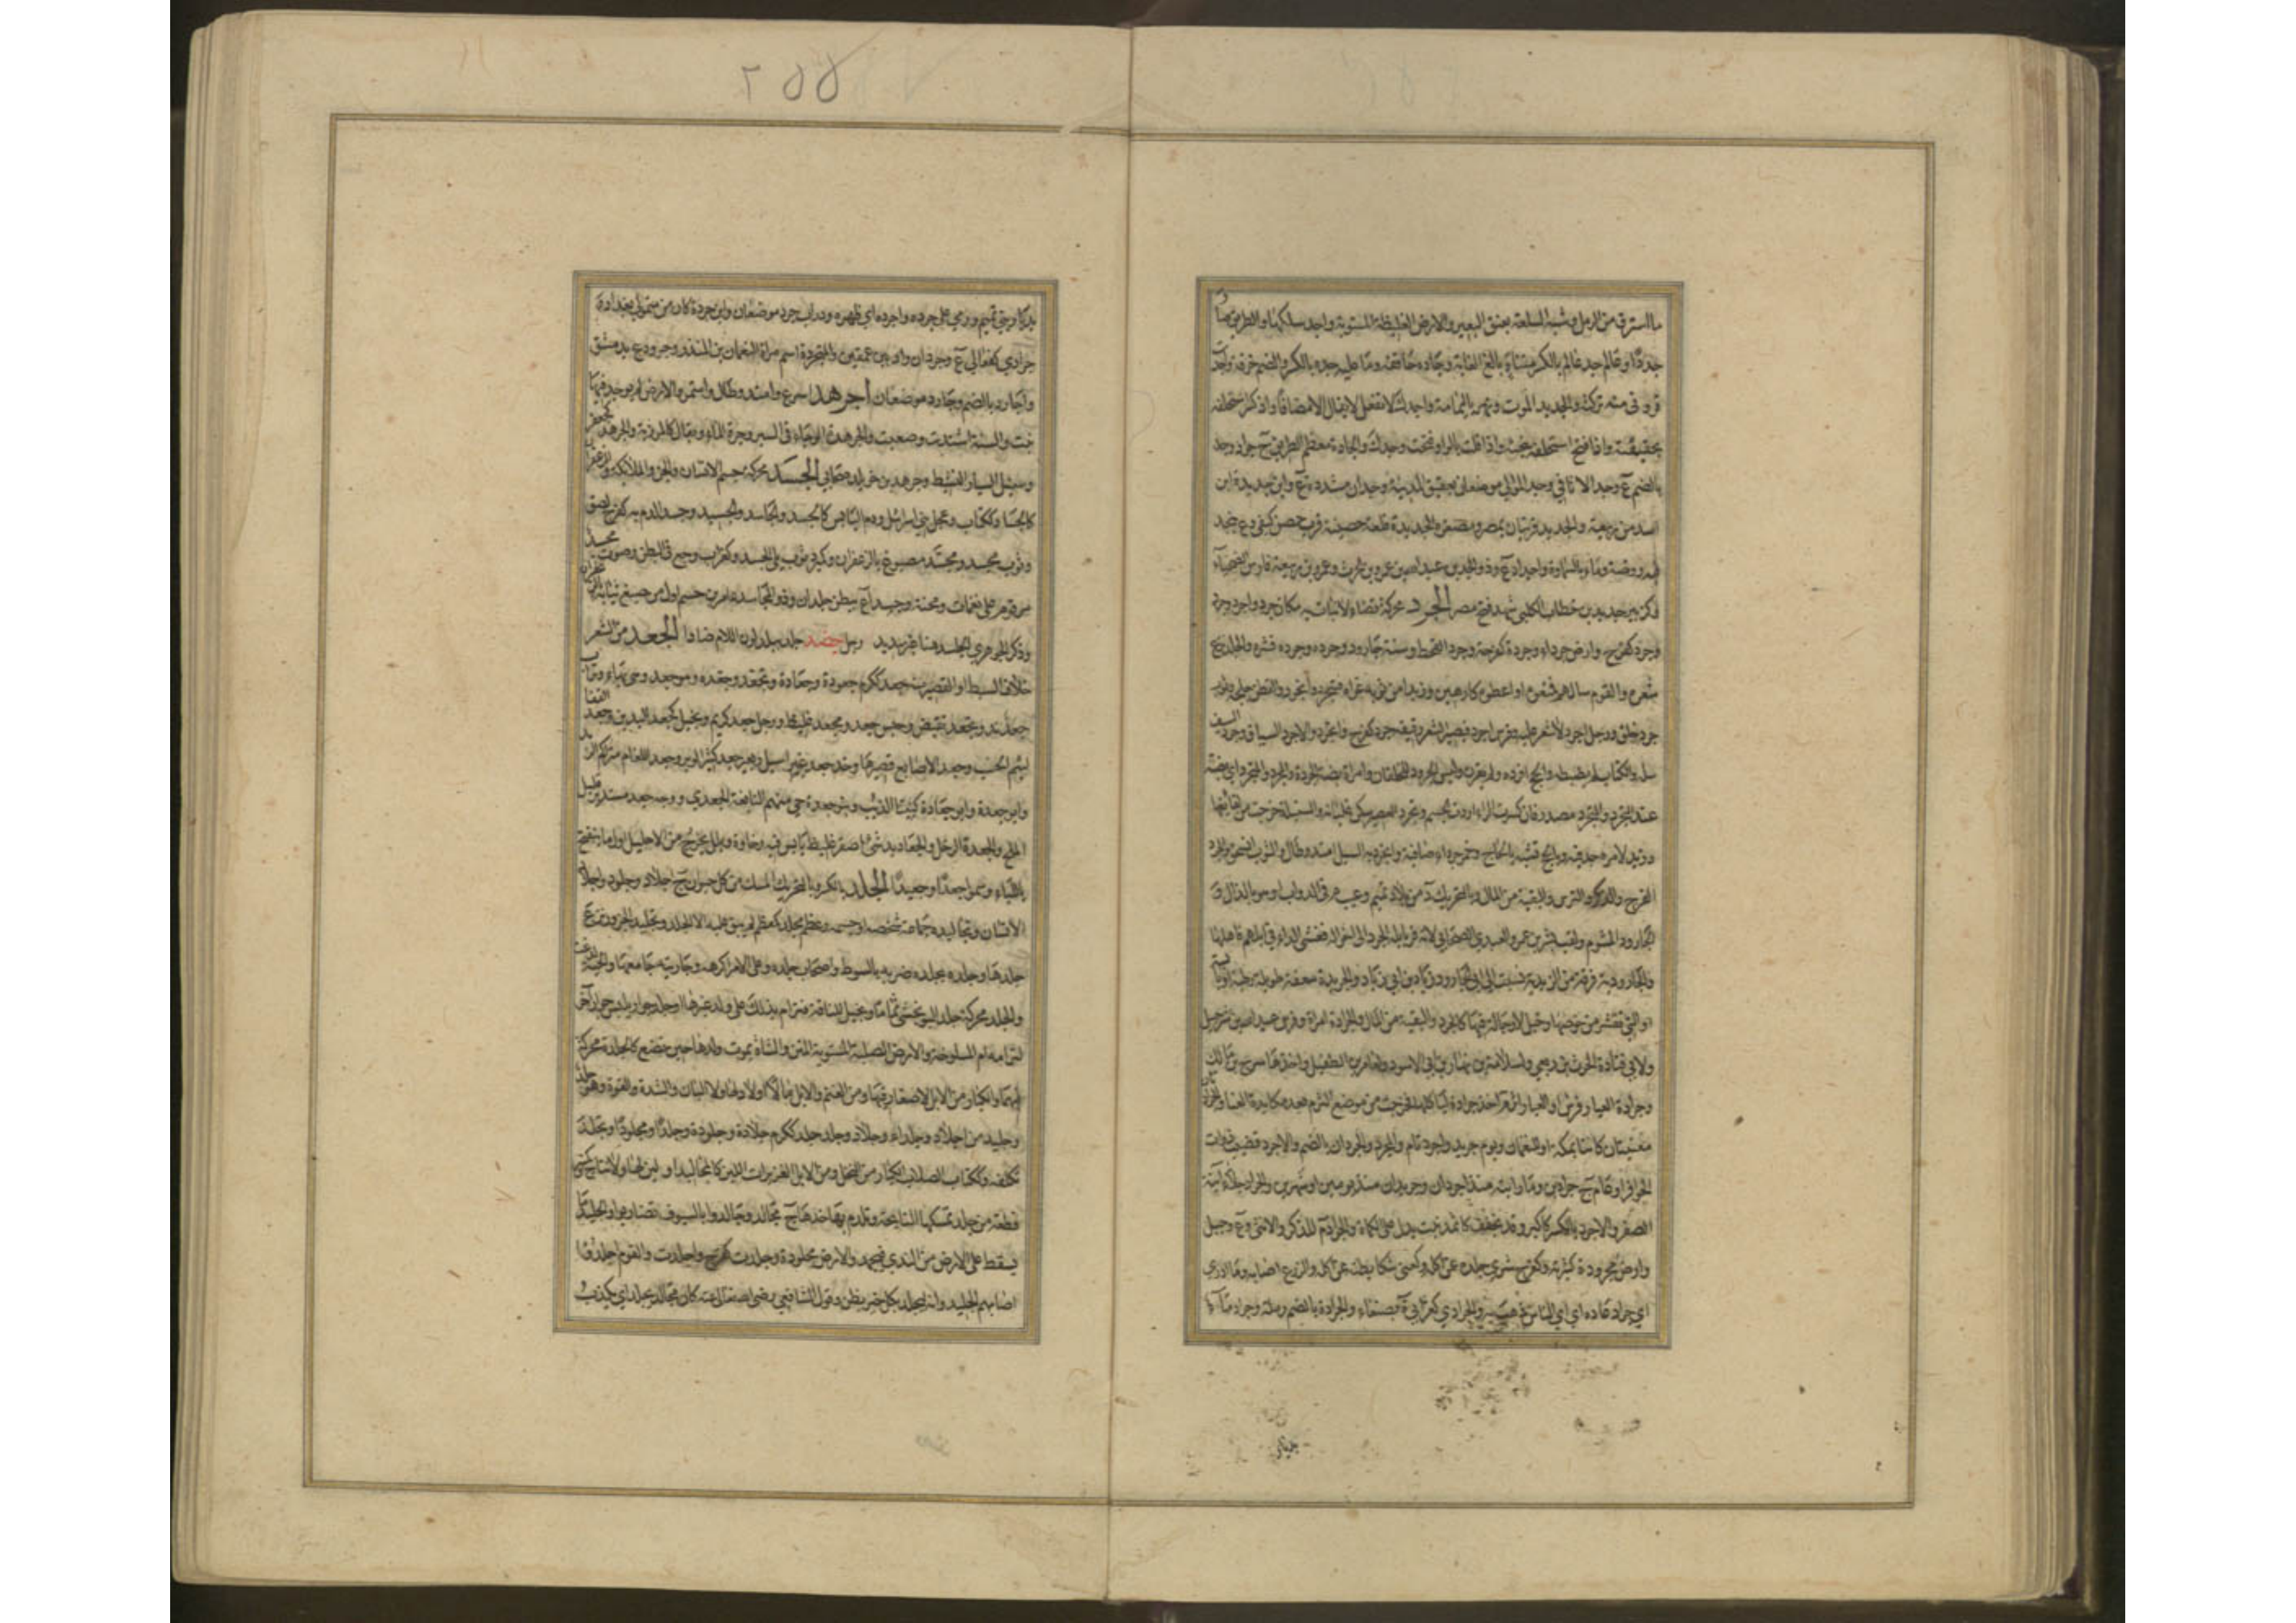 ما استرق من الرمل وشبه السلعة بعنق البعير والارض الغليظة المستوية واجد سلكها والطريق صار
جددا وعالم جد عالم بالكسر متناه بالغ الغاية وجاده حاققه وما عليه جده بالكسر والضم خرقة واجدت
قروني منه تركته والجديد الموت ونهر باليمامة واجدك لا تفعل لا يقال الا مضافا واذا كسر استحلفه
بحقيقته واذا فتح استحلفه ببخته واذا قلت بالواو فتحت وجدك والجادة معظم الطريق ج جواد وجد
بالضم ع وجد الاثافي وجد الموالي موضعان بعقيق المدينة وجدان مشددة ع وابن جديلة ابن
اسد من ربيعة والجديد قريتان بمصر ومصغره الجديدة قلعة حصينة قرب حصن كيفى وع بنجد
فيه روضة وماء بالسماوة واجداد ع وذو الجدين عبد الله بن عمرو بن الحرث وعمرو بن ربيعة فارس الضحياء
وكزبير جديد بن خطاب الكلبي شهد فتح مصر الجرد محركة فضاء لا نبات به مكان جرد واجرد وجرد
وجرد كفرح وارض جرداء وجردة كفرحة وجردها القحط وسنة جارود وجرده وجرده قشره والجلد نزع
شعره والقوم سالهم فمنعوه او اعطوه كارهين وزيدا من ثوبه عراه فتجرد وانجرد والقطن حلجه وثوب
جرد خلق ورجل اجرد لا شعر عليه وفرس اجرد قصير الشعر رقيقه جرد كفرح وانجرد والاجرد السباق وجرد السيف
سله والكتاب لم يضبطه والحج افرده ولم يقرن ولبس الجرود للخلقان وامراة بضة الجردة والمجرد والمتجرد اي بضة
عند التجرد والمتجرد مصدر فان كسرت الراء اردت الجسم وتجرد العصير سكن غليانه والسنبلة خرجت من لفائفها
وزيد لامره جد فيه وبالحج تشبه بالحاج وخمر جرداء صافية وانجرد به السيل امتد وطال والثوب انسحق والجرد
الفرج والذكر والترس والبقية من المال وبالتحريك د من بلاد تميم وعيب م في الدواب او هو بالذال و
الجارود المشوم ولقب بشر بن عمرو العبدي الصحابي لانه فر بابله الجرد الى اخواله ففشى الداء في ابلهم فاهلكها
والجارودية فرقة من الزيدية نسبت الى ابي الجارود زياد بن ابي زياد والجريدة سعفة طويلة رطبة او يابسة
او التي تقشر من خوصها وخيل لا رجالة فيها كالجرد والبقية من المال والجرادة امراة وفرس عبد الله بن شرحبيل
ولابي قتادة الحرث بن ربعي ولسلامة بن نهار بن ابي الاسود ولعامر بن الطفيل واخذها سرح بن مالك
وجرادة العيار فرس او العيار اثرم اخذ جرادة لياكلها فخرجت من موضع الثرم بعد مكابدة العناء والجرادتان
مغنيتان كانتا بمكة او للنعمان ويوم جريد واجرد تام والمجرد والجردان بالضم والاجرد قضيب ذوات
الحوافر او عام ج جرادين وما رايته منذ اجردان وجريدان منذ يومين او شهرين والجراد جلاء آنية
الصفر والاجرد بالكسر كاكبر وقد يخفف كاثمد نبت يدل على الكماة والجراد م للذكر والانثى وع وجبل
وارض مجرودة كثيرته وكفرح شري جلده عن اكله وكعني شكا بطنه عن اكله والزرع اصابه وما ادري
اي جراد عاده اي اي الناس ذهب به والجرادي كغرابي ة بصنعاء والجرادة بالضم رملة وجراد ماء
بديار بني تميم ورمي على جرده واجرده اي ظهره ودراب جرد موضعان وابن جردة كان من متمولي بغداد و
جرادى كفعالى ع وجردان واد بين عمقين والمتجردة اسم مراة النعمان بن المنذر وجرود ع بدمشق
واجارد بالضم وجارد موضعان اجرهد اسرع وامتد وطال واستمر والارض لم يوجد فيها
نبت والسنة اشتدت وصعبت والجرهدة الوحاء في السير وجرة الماء ويقال كالمرزبة والجرهد كجعفر
وسبحل السيار النشيط وجرهد بن خويلد صحابي الجسد محركة جسم الانسان والجن والملائكة والزعفران
كالجساد ككتاب وعجل بني اسرائيل ودم اليابس كالجسد والجاسد والجسيد وجسد الدم به كفرح لصق
وثوب مجسد ومجسد مصبوغ بالزعفران وكمبرد ثوب يلي الجسد وكغراب وجع في البطن وصوت مجسد
مرقوم على نغمات ومحنة وجسداء ع ببطن جلدان وذو المجاسد عامر بن جشم اول من صبغ ثيابه بالزعفران
وذكر الجوهري الجلسد هنا غير سديد رجل جضد جلد يبدلون اللام ضادا الجعد من الشعر
خلاف السبط او القصير منه جعد ككرم جعودة وجعادة وتجعد وجعده وهو جعد وهي بهاء وتراب
جعد ند وتجعد تقبض وحيس جعد ومجعد غليظ ورجل جعد كريم وبخيل كجعد اليدين وجعد القفا
لئيم الحسب وجعد الاصابع قصيرها وخد جعد غير اسيل وبعير جعد كثير الوبر وجعد اللغام متراكم الزبد
وابو جعدة وابو جعادة كنيتا الذئب وبنو جعدة حي منهم النابغة الجعدي ووجه جعد مستدير قليل
الملح والجعدة الرخل والجعاديد شيء اصفر غليظ يابس فيه رخاوة وبلل يخرج من الاحليل اول ما ينفتح
باللباء وسموا جعدا وجعيدا الجلد بالكسر وبالتحريك المسك من كل حيوان ج اجلاد وجلود واجلاد
الانسان وتجاليده جماعة شخصه او جسمه وعظم مجلد كمعظم لم يبق عليه الا الجلد وتجليد الجزور نزع
جلدها وجلده يجلده ضربه بالسوط واصاب جلده وعلى الامر اكرهه وجاريته جامعها والحية لدغت
والجلد محركة جلد البو يحشى ثماما ويخيل للناقة فترام بذلك على ولد غيرها او جلد حوار يلبس حوارا آخر
لترامه ام المسلوخة والارض الصلبة المستوية المتن والشاة يموت ولدها حين تضع كالجلدة محركة
فيهما والكبار من الابل لا صغار فيها ومن الغنم والابل ما لا اولاد لها ولا البان والشدة والقوة وهو جلد
وجليد من اجلاد وجلداء وجلاد وجلد جلد ككرم جلادة وجلودة وجلدا ومجلودا وتجلد
تكلفه وككتاب الصلاب الكبار من النخل ومن الابل الغزيرات اللبن كالمجاليد او لا لبن لها ولا نتاج وكمنبر
قطعة من جلد تمسكها النائحة وتلدم بها خدها ج مجاليد وجالدوا بالسيوف تضاربوا والجليد ما
يسقط على الارض من الندى فيجمد والارض مجلودة وجلدت كفرح واجلدت والقوم اجلدوا
اصابهم الجليد وانه ليجلد بكل خير يظن وقول الشافعي رضي الله تعالى عنه كان مجالد يجلد اي يكذب
٢٥٥
بديار